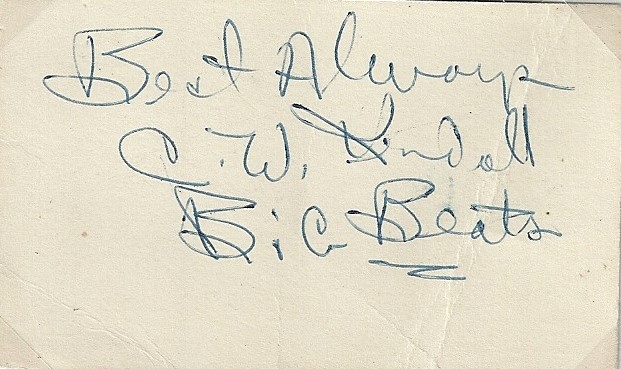 Best Always
C.W. Kendall
BiG Beats